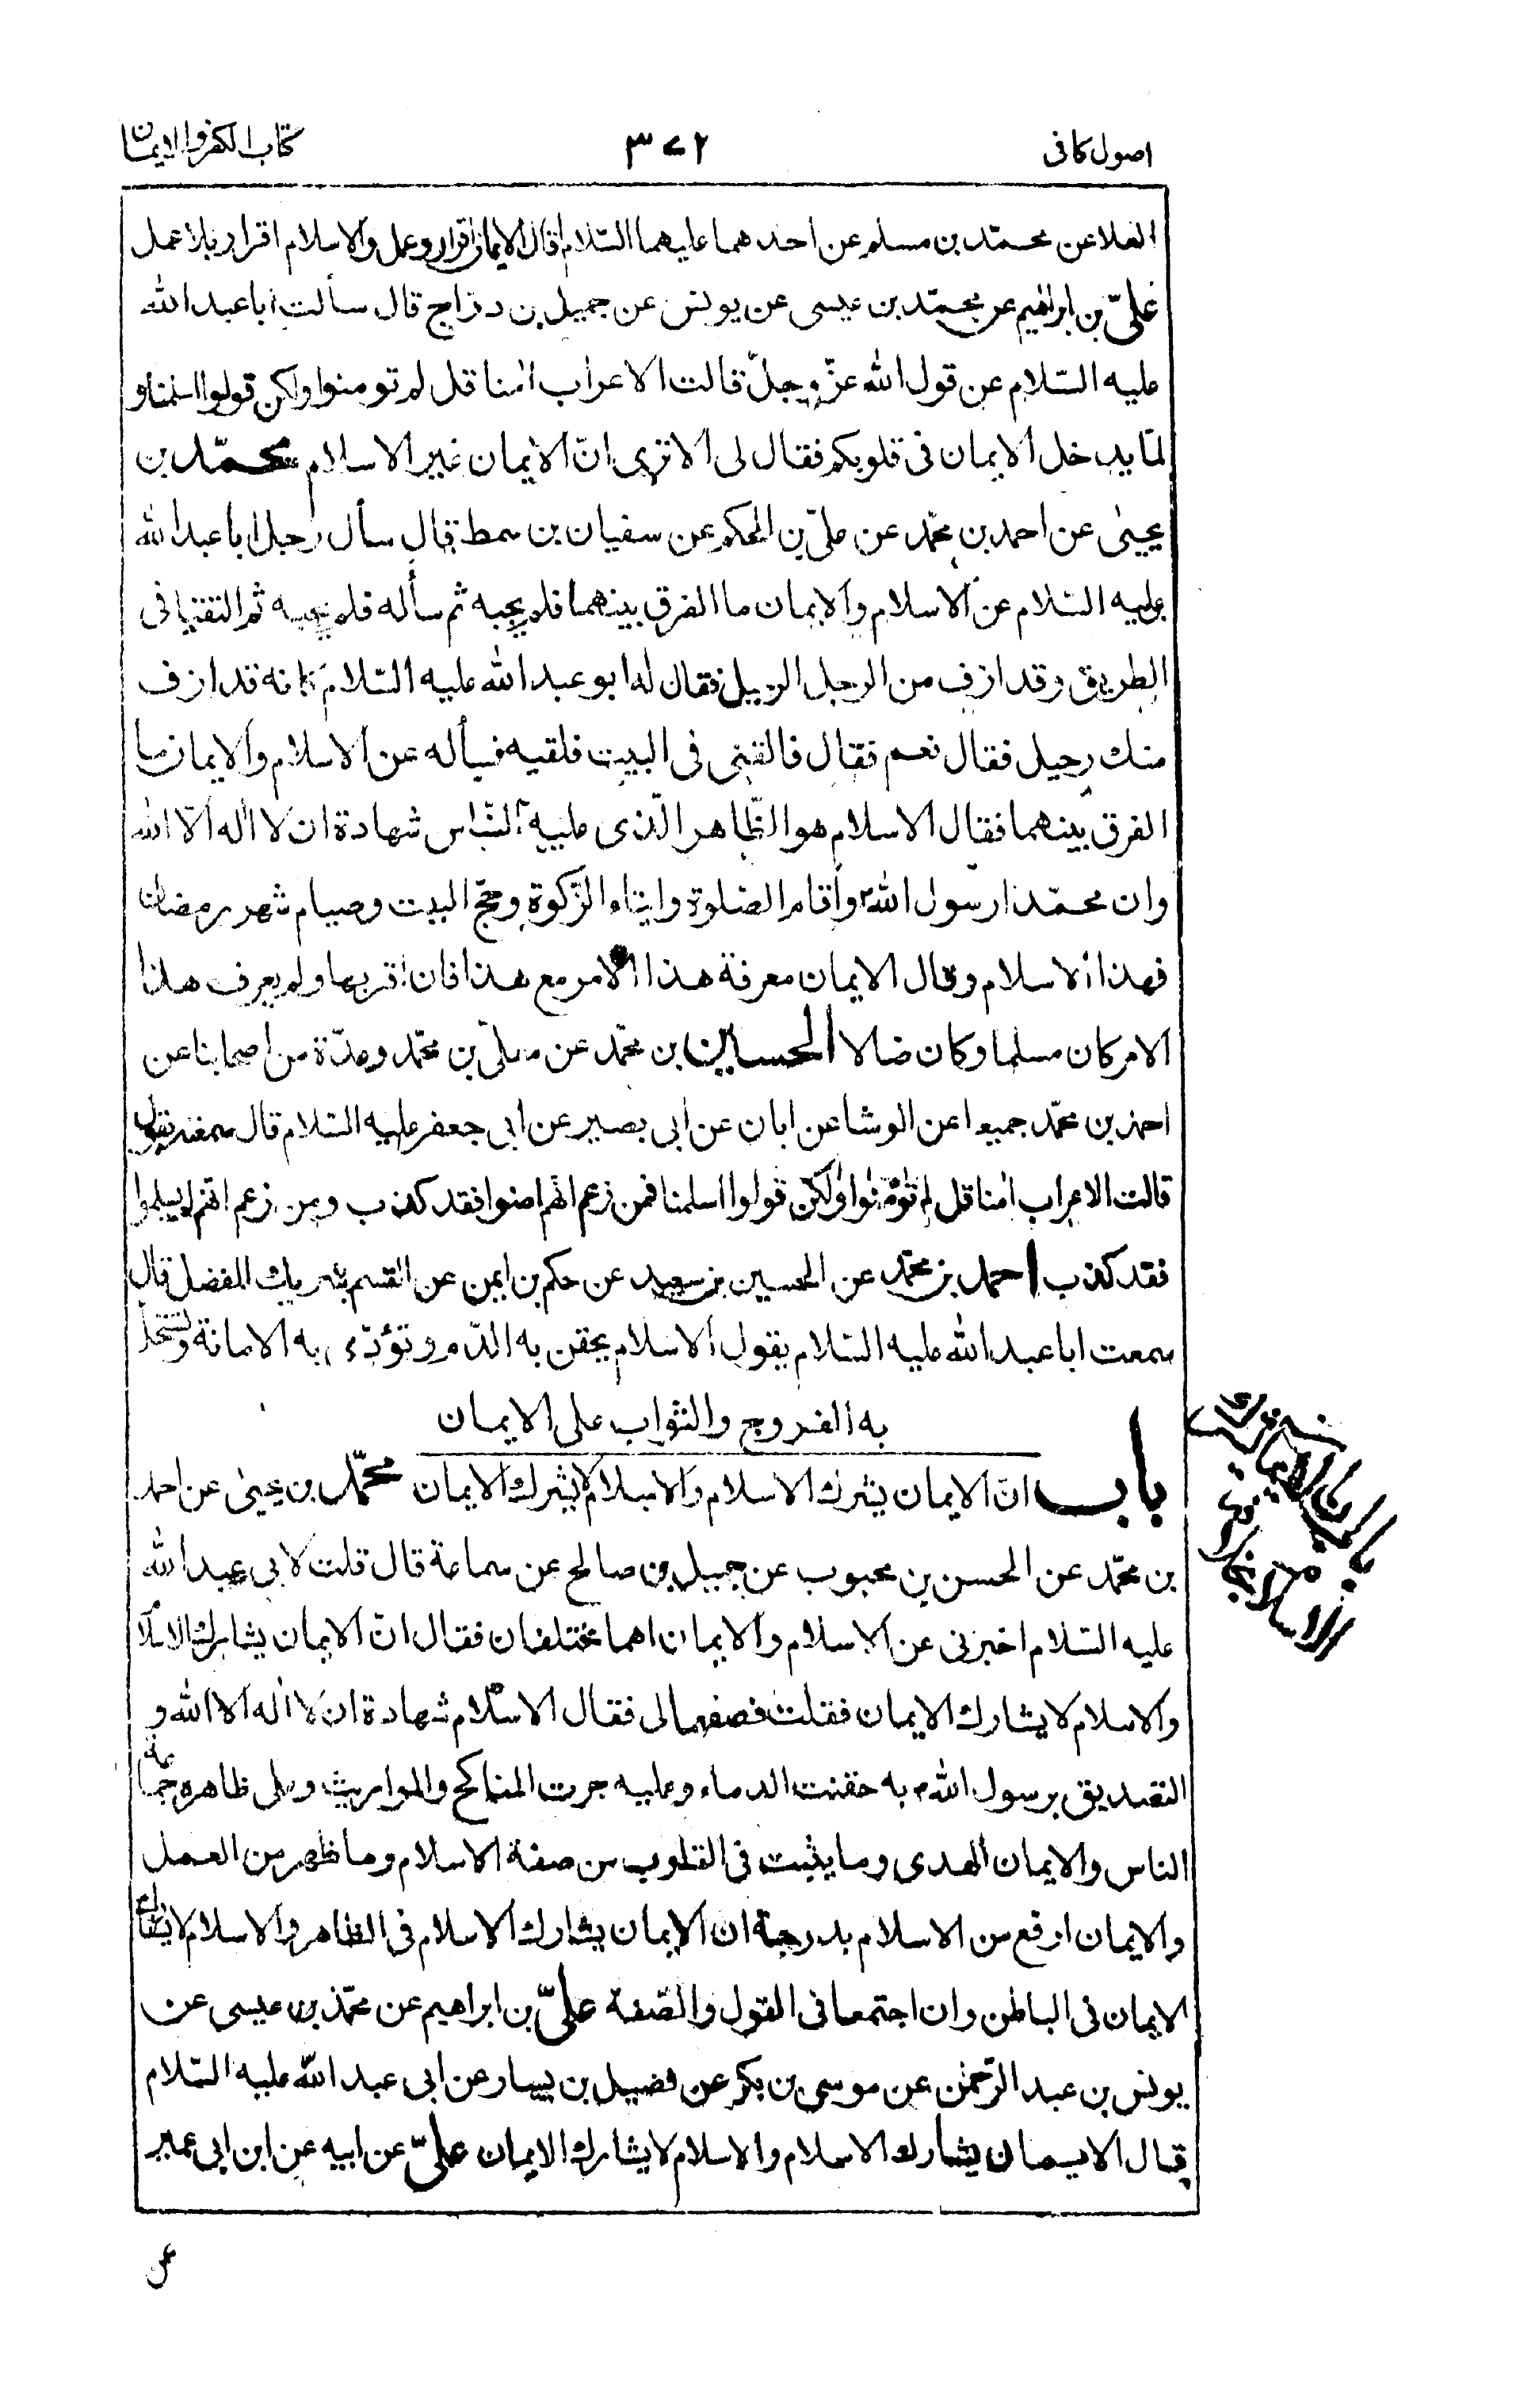 اصول كافى
٣٧٢
كتاب الكفر والايمان
العلا عن محمّد بن مسلم عن احدهما عليهما السّلام قال الايمان اقرار وعمل والاسلام اقرار بلا عمل
علىّ بن ابراهيم عن محمّد بن عيسى عن يونس عن جميل بن دراج قال سألت ابا عبد الله
عليه السّلام عن قول الله عزّ وجلّ قالت الاعراب امنا قل لم تومنوا ولكن قولوا اسلمنا و
لمّا يدخل الايمان فى قلوبكم فقال لى الا ترى انّ الايمان غير الاسلام محمّد بن
يحيىٰ عن احمد بن محمّد عن علىّ بن الحكم عن سفيان بن سمط قال سأل رجل ابا عبد الله
عليه السّلام عن الاسلام والايمان ما الفرق بينهما فلم يجبه ثم سأله فلم يجبه ثم التقيا فى
الطريق وقد ازف من الرجل الرحيل فقال له ابو عبد الله عليه السّلام كانه قد ازف
منك رحيل فقال نعم فقال فالقنى فى البيت فلقيه فسأله عن الاسلام والايمان ما
الفرق بينهما فقال الاسلام هو الظّاهر الّذى عليه النّاس شهادة ان لا اله الّا الله
وان محمّدا رسول الله ص واقام الصّلوة وايتاء الزّكوة وحجّ البيت وصيام شهر رمضان
فهذا الاسلام وقال الايمان معرفة هذا الامر مع هذا فان اقر بها ولم يعرف هذا
الامر كان مسلما وكان ضالا الحسين بن محمّد عن معلّى بن محمّد وعدّة من اصحابنا عن
احمد بن محمّد جميعا عن الوشا عن ابان عن ابى بصير عن ابى جعفر عليه السّلام قال سمعته يقول
قالت الاعراب امنا قل لم تؤمنوا ولكن قولوا اسلمنا فمن زعم انّهم امنوا فقد كذب ومن زعم انّهم لم يسلموا
فقد كذب احمد بن محمّد عن الحسين بن سعيد عن حكم بن ايمن عن القسم شريك المفضل قال
سمعت ابا عبد الله عليه السّلام يقول الاسلام يحقن به الدّم وتؤدّى به الامانة وتستحلّ
به الفروج والثواب على الايمان
باب انّ الايمان يشرك الاسلام والاسلام لا يشرك الايمان محمّد بن يحيىٰ عن احمد
بن محمّد عن الحسن بن محبوب عن جميل بن صالح عن سماعة قال قلت لابى عبد الله
عليه السّلام اخبرنى عن الاسلام والايمان اهما مختلفان فقال انّ الايمان يشارك الاسلام
والاسلام لا يشارك الايمان فقلت فصفهما لى فقال الاسلام شهادة ان لا اله الا الله و
التصديق برسول الله ص به حقنت الدماء وعليه جرت المناكح والمواريث وعلى ظاهره جماعة
الناس والايمان الهدى وما يثبت فى القلوب من صفة الاسلام وما ظهر من العمل
والايمان ارفع من الاسلام بدرجة ان الايمان يشارك الاسلام فى الظاهر والاسلام لا يشارك
الايمان فى الباطن وان اجتمعا فى القول والصّفة علىّ بن ابراهيم عن محمّد بن عيسى عن
يونس بن عبد الرّحمٰن عن موسى بن بكر عن فضيل بن يسار عن ابى عبد الله عليه السّلام
قال الايمان يشارك الاسلام والاسلام لا يشارك الايمان علىّ عن ابيه عن ابن ابى عمير
عن